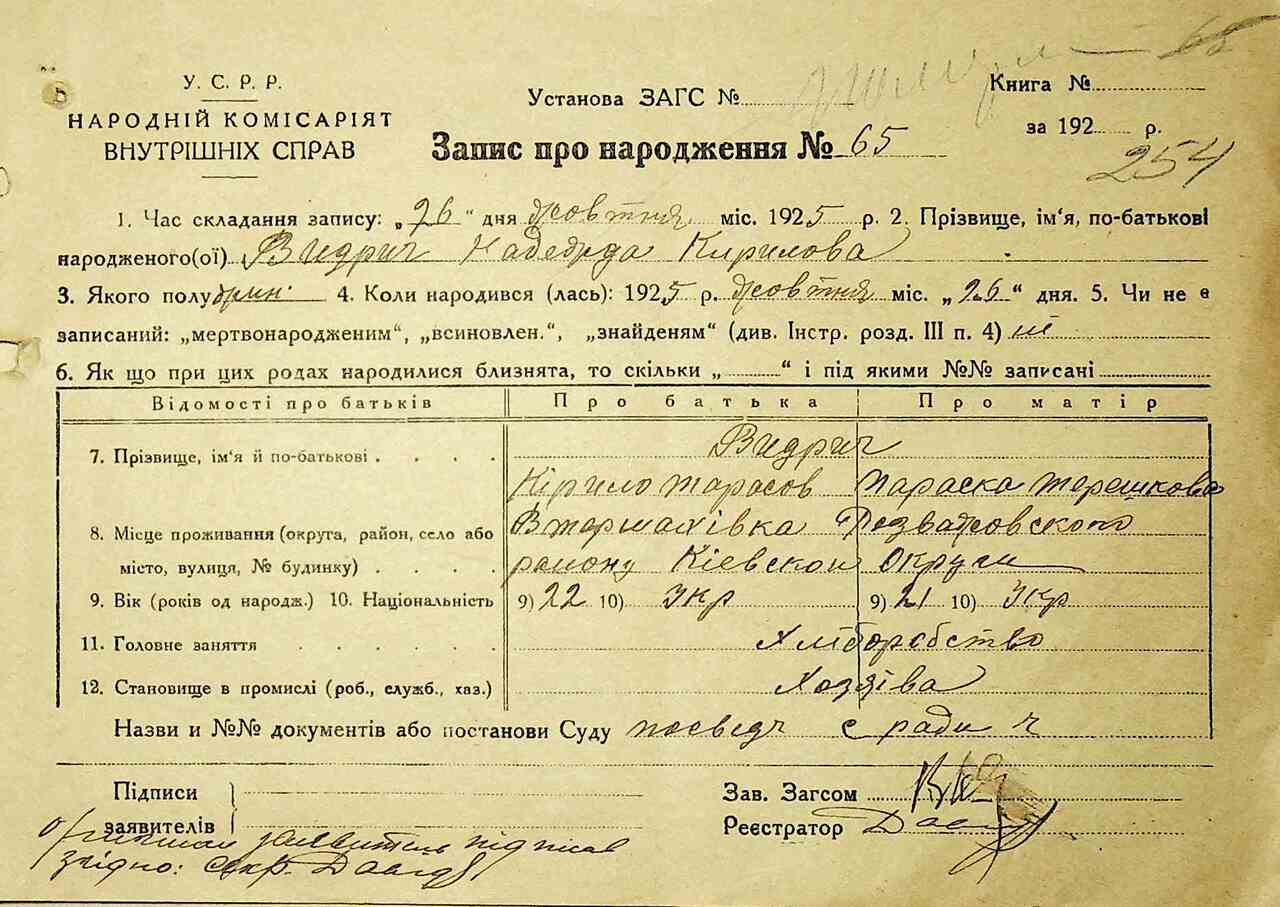 У. С. Р. Р.
НАРОДНІЙ КОМІСАРІЯТ
ВНУТРІШНІХ СПРАВ
Установа ЗАГС №
Книга №
за 192 р.
Запис про народження № 65
254
1. Час складання запису: „26“ дня жовтня міс. 1925 р. 2. Прізвище, ім'я, по-батькові
народженого(ої) Видрич Надежда Кирилова
3. Якого полу жін. 4. Коли народився (лась): 1925 р. жовтня міс. „26“ дня. 5. Чи не є
записаний: „мертвонародженим“, „всиновлен.“, „знайденям“ (див. Інстр. розд. III п. 4) ні
6. Як що при цих родах народилися близнята, то скільки „ “ і під якими №№ записані
Відомості про батьків Про батька Про матір
7. Прізвище, ім'я й по-батькові Видрич
Кірило Тарасов Параска Терешкова
8. Місце проживання (округа, район, село або Розважовского
місто, вулиця, № будинку) району Кіевскои Округи
9. Вік (років од народж.) 10. Національність 9) 22 10) Укр 9) 21 10) Укр
11. Головне заняття Хліборобство
12. Становище в промислі (роб., служб., хаз.) Хозяїва
Назви и №№ документів або постанови Суду посвідч с ради
Підписи
заявителів
Зав. Загсом
Реєстратор
заявитель підписав
згідно: секр.